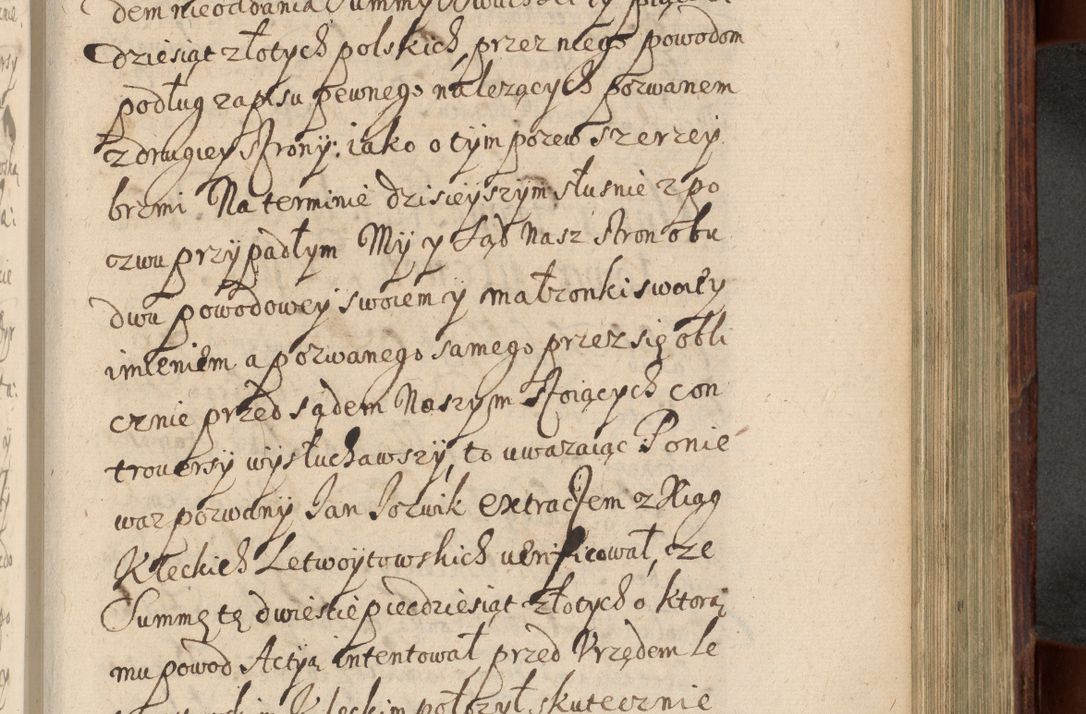 dem nieoddania Summy Dwuchset y pięć
dziesiąt złotych polskich, przez niego powodom
podług zapisu pewnego nalezących pozwanem
z drugiey strony: iako o tym pozew szerzey
brzmi Na terminie dzisieyszym słusnie z po
zwu przypadłym My y Sąd Nasz stron obu
dwu powodowey swoiem y małzonki swoiey
imieniem a pozwanego samego przez się obli
cznie przed sądem Naszym stoiących con
troversy wysłuchawszy, to uwazaiąc Ponie
waz pozwany Jan Jozwik extractem z Xiąg
Kłeckich Letwoytowskich verificował, cze
Summę tę dwiescie piecdziesiąt złotych o ktorą
mu powod Actyą intentował przed Urzędem Le
Kłeckim połozył skutecznie